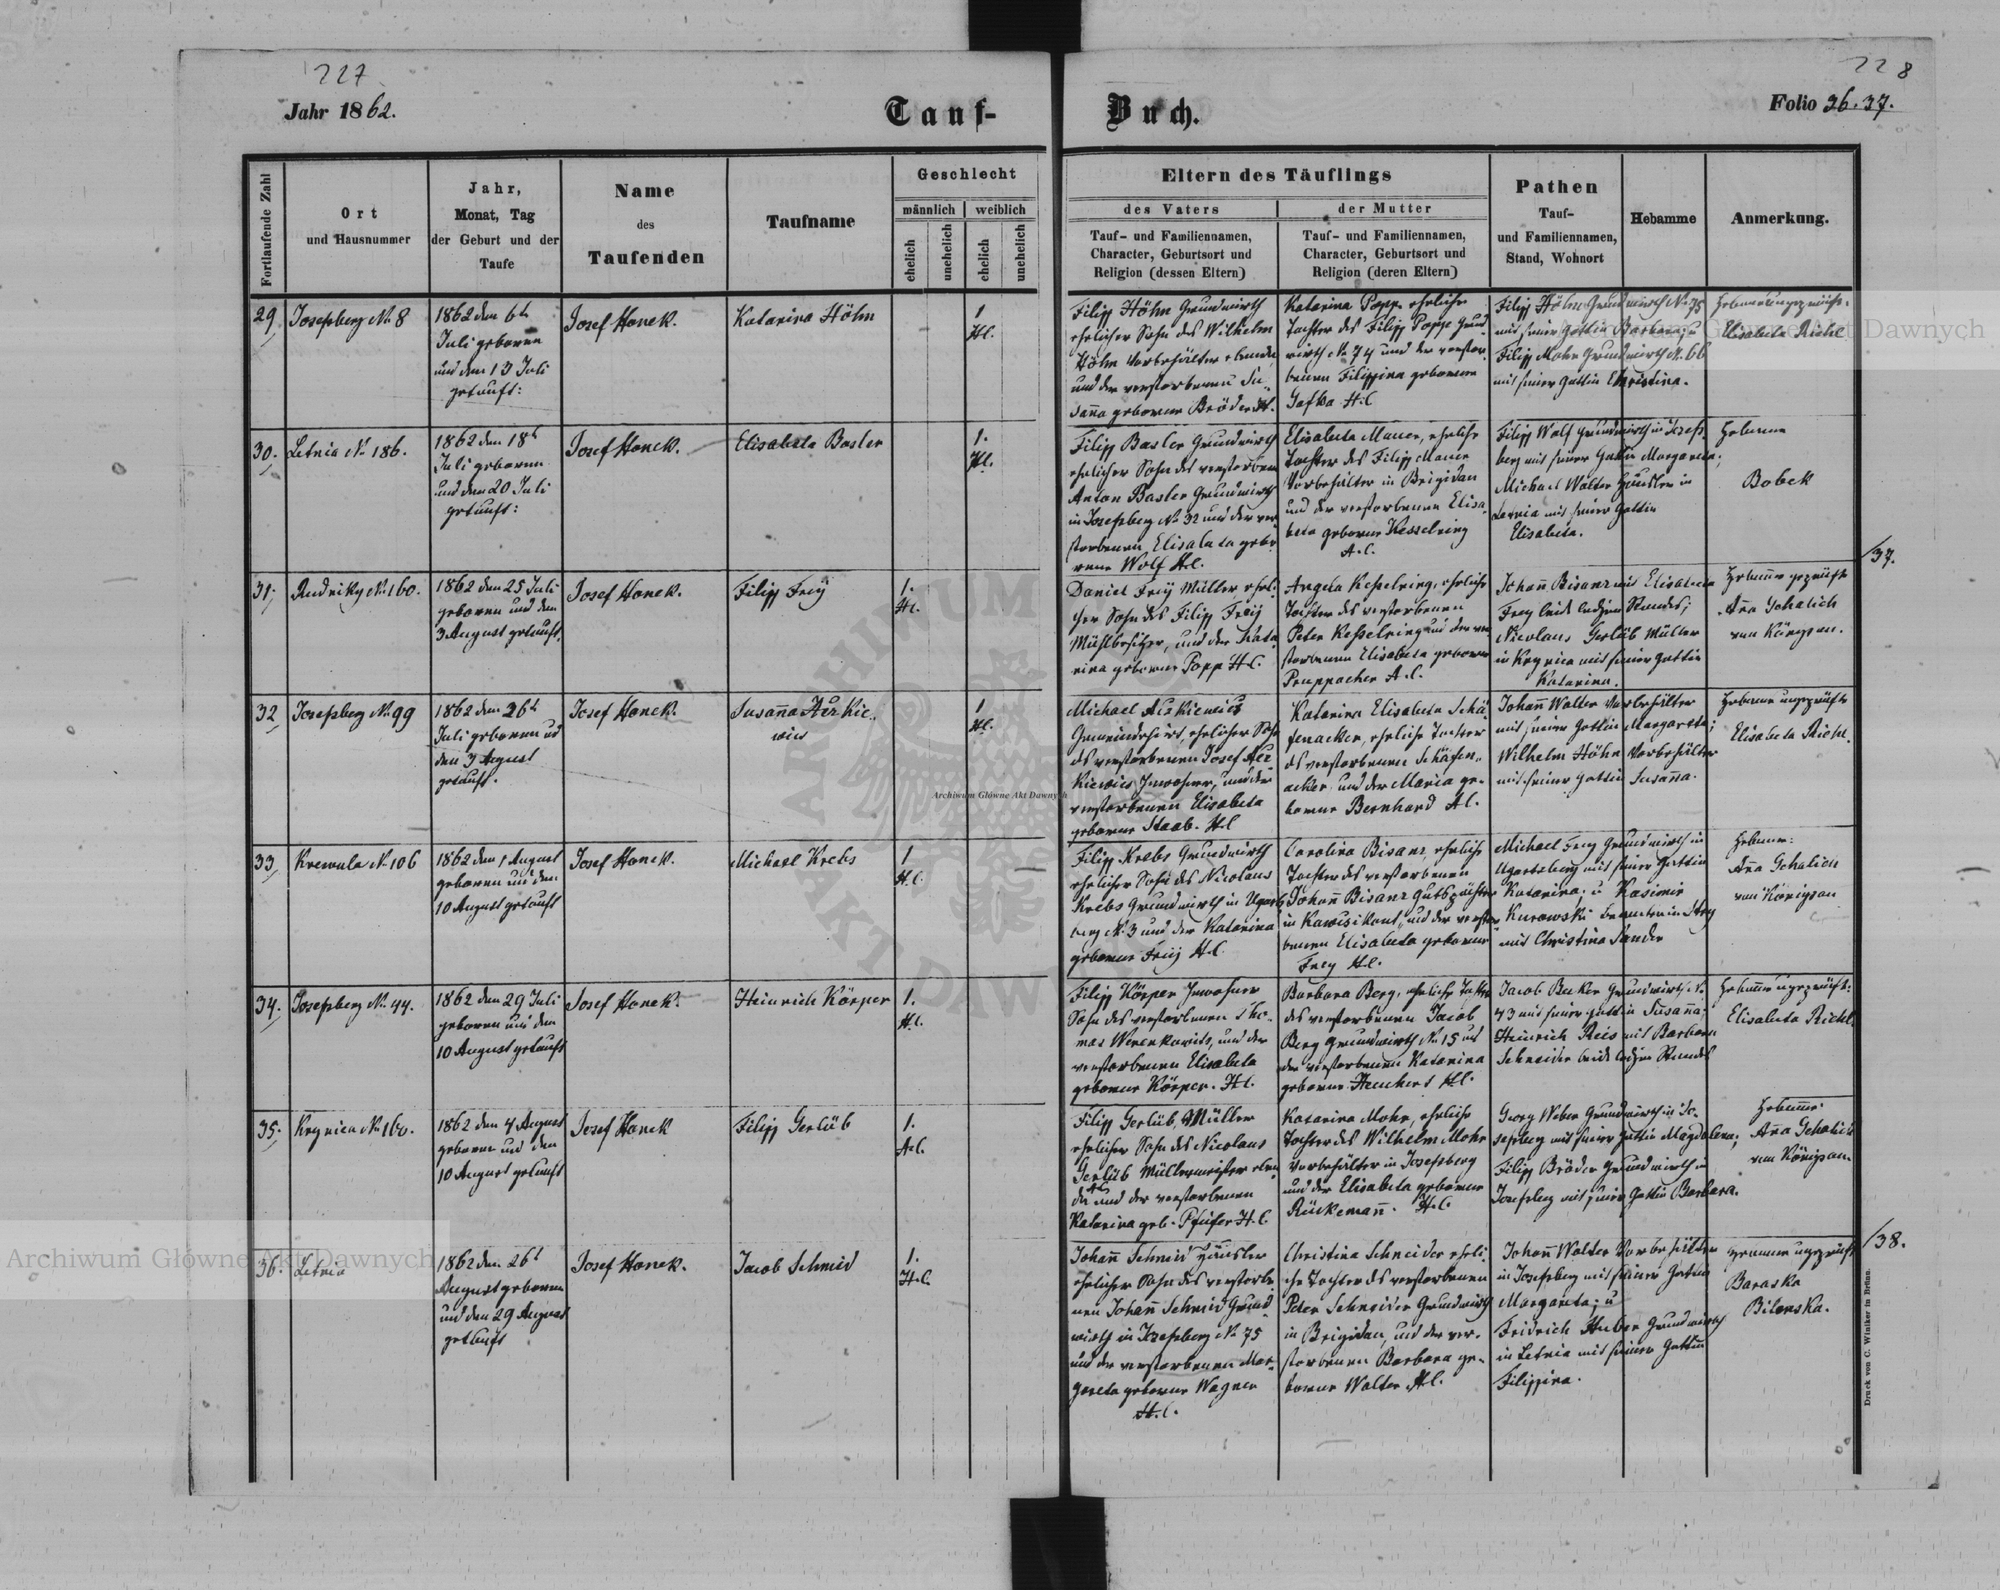 227
228
Jahr 1862.
Tauf-
Buch.
Folio 36. 37.
Fortlaufende Zahl
Ort
und Hausnummer
Jahr,
Monat, Tag
der Geburt und der
Taufe
Name
des
Taufenden
Taufname
Geschlecht
männlich
weiblich
ehelich
unehelich
ehelich
unehelich
Eltern des Täuflings
des Vaters
der Mutter
Tauf- und Familiennamen,
Character, Geburtsort und
Religion (dessen Eltern)
Tauf- und Familiennamen,
Character, Geburtsort und
Religion (deren Eltern)
Pathen
Tauf-
und Familiennamen,
Stand, Wohnort
Hebamme
Anmerkung.
29
Josefsberg No 8
1862 den 6t
Juli geboren
und den 13 Juli
getauft:
Josef Honek.
Katarina Höhn
1
H.C.
Filipp Höhn Grundwirth
ehelicher Sohn des Wilhelm
Höhn Vorbehälter
und der verstorbenen Su-
sanna geborne Bröder H.C.
Katarina Popp, eheliche
Tochter des Filipp Popp Grund
wirth No 74 und der verstor-
benen Filippina geborene
H.C.
Filipp Höhn Grundwirth No 75
mit seiner Gattin Barbara; u
Filipp Mohr Grundwirth N. 66
mit seiner Gattin Christina.
Hebamme ungeprüft:
Elisabeta Richl
30.
Letnia No 186.
1862 den 18t
Juli geboren
und den 20 Juli
getauft:
Josef Honek.
Elisabeta Basler
1.
H.C.
Filipp Basler Grundwirth
ehelicher Sohn des verstorbenen
Anton Basler Grundwirth
in Josefsberg No 32 und der ver
storbenen Elisabeta gebo-
rene Wolf H.C.
Elisabeta Mauer, eheliche
Tochter des Filipp Mauer
Vorbehälter in Brigidau
und der verstorbenen Elisa-
beta geborne Kesselring
A.C.
Filipp Wolf Grundwirth in Josefs-
berg mit seiner Gattin Margareta;
Michael Walter Häusler in
Letnia mit seiner Gattin
Elisabeta.
Hebamme
Bobek
37.
31.
Rudniky No 160.
1862 den 25 Juli
geboren und den
3 August getauft.
Josef Honek.
Filipp Freÿ
1.
H.C.
Daniel Freÿ Müller eheli-
cher Sohn des Filipp Freÿ
Mühlbesitzer, und der Kata
rina geborne Popp H.C.
Angela Kesselring, eheliche
Tochter des verstorbenen
Peter Kesselring und der ver-
storbenen Elisabeta geborne
Pruppacher A.C.
Johann Bisanz mit Elisabeta
Frey beide ledigen Standes;
Nicolaus Gerlüb Müller
in Krynica mit seiner Gattin
Katarina.
Hebamme geprüft
Anna Schalich
von Königsau.
32
Josefsberg No 99
1862 den 26t
Juli geboren und
den 3 August
getauft.
Josef Honek.
1
H.C.
Michael
Gemeindehirt, ehelicher Sohn
des verstorbenen Josef
Inwohner, und der
verstorbenen Elisabeta
geborne Staab. H.C.
Katarina Elisabeta Schä-
fenacker, eheliche Tochter
des verstorbenen Schäfen-
acker und der Maria ge-
borene Bernhard A.C.
Johann Walter Vorbehälter
mit seiner Gattin Margareta;
Wilhelm Höhn Vorbehälter
mit seiner Gattin Susanna.
Hebamme ungeprüft
Elisabeta Richl.
33
No 106
1862 den 1 August
geboren und den
10 August getauft
Josef Honek.
Michael Krebs
1
H.C.
Filipp Krebs Grundwirth
ehelicher Sohn des Nicolaus
Krebs Grundwirth in Ugarts
berg No 3 und der Katarina
geborne Freÿ H.C.
Carolina Bisanz, eheliche
Tochter des verstorbenen
Johann Bisanz Gutspächter
in und der verstor
benen Elisabeta geborne
Frey H.C.
Michael Frey Grundwirth in
Ugartsberg mit seiner Gattin
Katarina; u Kasimir
Kurowski Beamter in Stry
mit Christina Sander
Hebamme:
Anna Schalich
von Königsau
34.
Josefsberg No 44.
1862 den 29 Juli
geboren und den
10 August getauft
Josef Honek.
Heinrich Körper
1.
H.C.
Filipp Körper Inwohner
Sohn des verstorbenen Tho-
mas und der
verstorbenen Elisabeta
geborne Körper. H.C.
Barbara Berg, eheliche Tochter
des verstorbenen Jacob
Berg Grundwirth No 15 und
der verstorbenen Katarina
geborne Heuchert H.C.
Jacob Becker Grundwirth N.
43 mit seiner Gattin Susanna;
Heinrich Reis mit Barbara
Schneider beide ledigen Standes
Hebamme ungeprüft:
Elisabeta Richl.
35.
Krynica No 160.
1862 den 4 August
geboren und den
10 August getauft
Josef Honek
Filipp Gerlüb
1.
A.C.
Filipp Gerlüb, Müller
ehelicher Sohn des Nicolaus
Gerlüb Müllermeister eben
da und der verstorbenen
Katarina geb. Pfeifer H.C.
Katarina Mohr, eheliche
Tochter des Wilhelm Mohr
Vorbehälter in Josefsberg
und der Elisabeta geborne
Rückemann. H.C.
Georg Weber Grundwirth in Jo-
sefsberg mit seiner Gattin Magdalena;
Filipp Bröder Grundwirth in
Josefsberg mit seiner Gattin Barbara.
Hebamme:
Anna Schalich
von Königsau
38.
36.
Letnia
1862 den 26t
August geboren
und den 29 August
getauft
Josef Honek.
Jacob Schmid
1.
H.C.
Johann Schmid Häusler
ehelicher Sohn des verstorbe
nen Johann Schmid Grund
wirth in Josefsberg No 75
und der verstorbenen Mar-
gareta geborne Wagner
H.C.
Christina Schneider eheli-
che Tochter des verstorbenen
Peter Schneider Grundwirth
in Brigidau, und der ver-
storbenen Barbara ge-
borene Walter A.C.
Johann Walter Vorbehälter
in Josefsberg mit seiner Gattin
Margareta; u
Fridrich Huber Grundwirth
in Letnia mit seiner Gattin
Filippina.
Hebamme ungeprüft
Baraska
Bilenska.
Druck von C. Winiker in Brünn.
Archiwum Główne Akt Dawnych
Archiwum Główne Akt Dawnych
Archiwum Główne Akt Dawnych